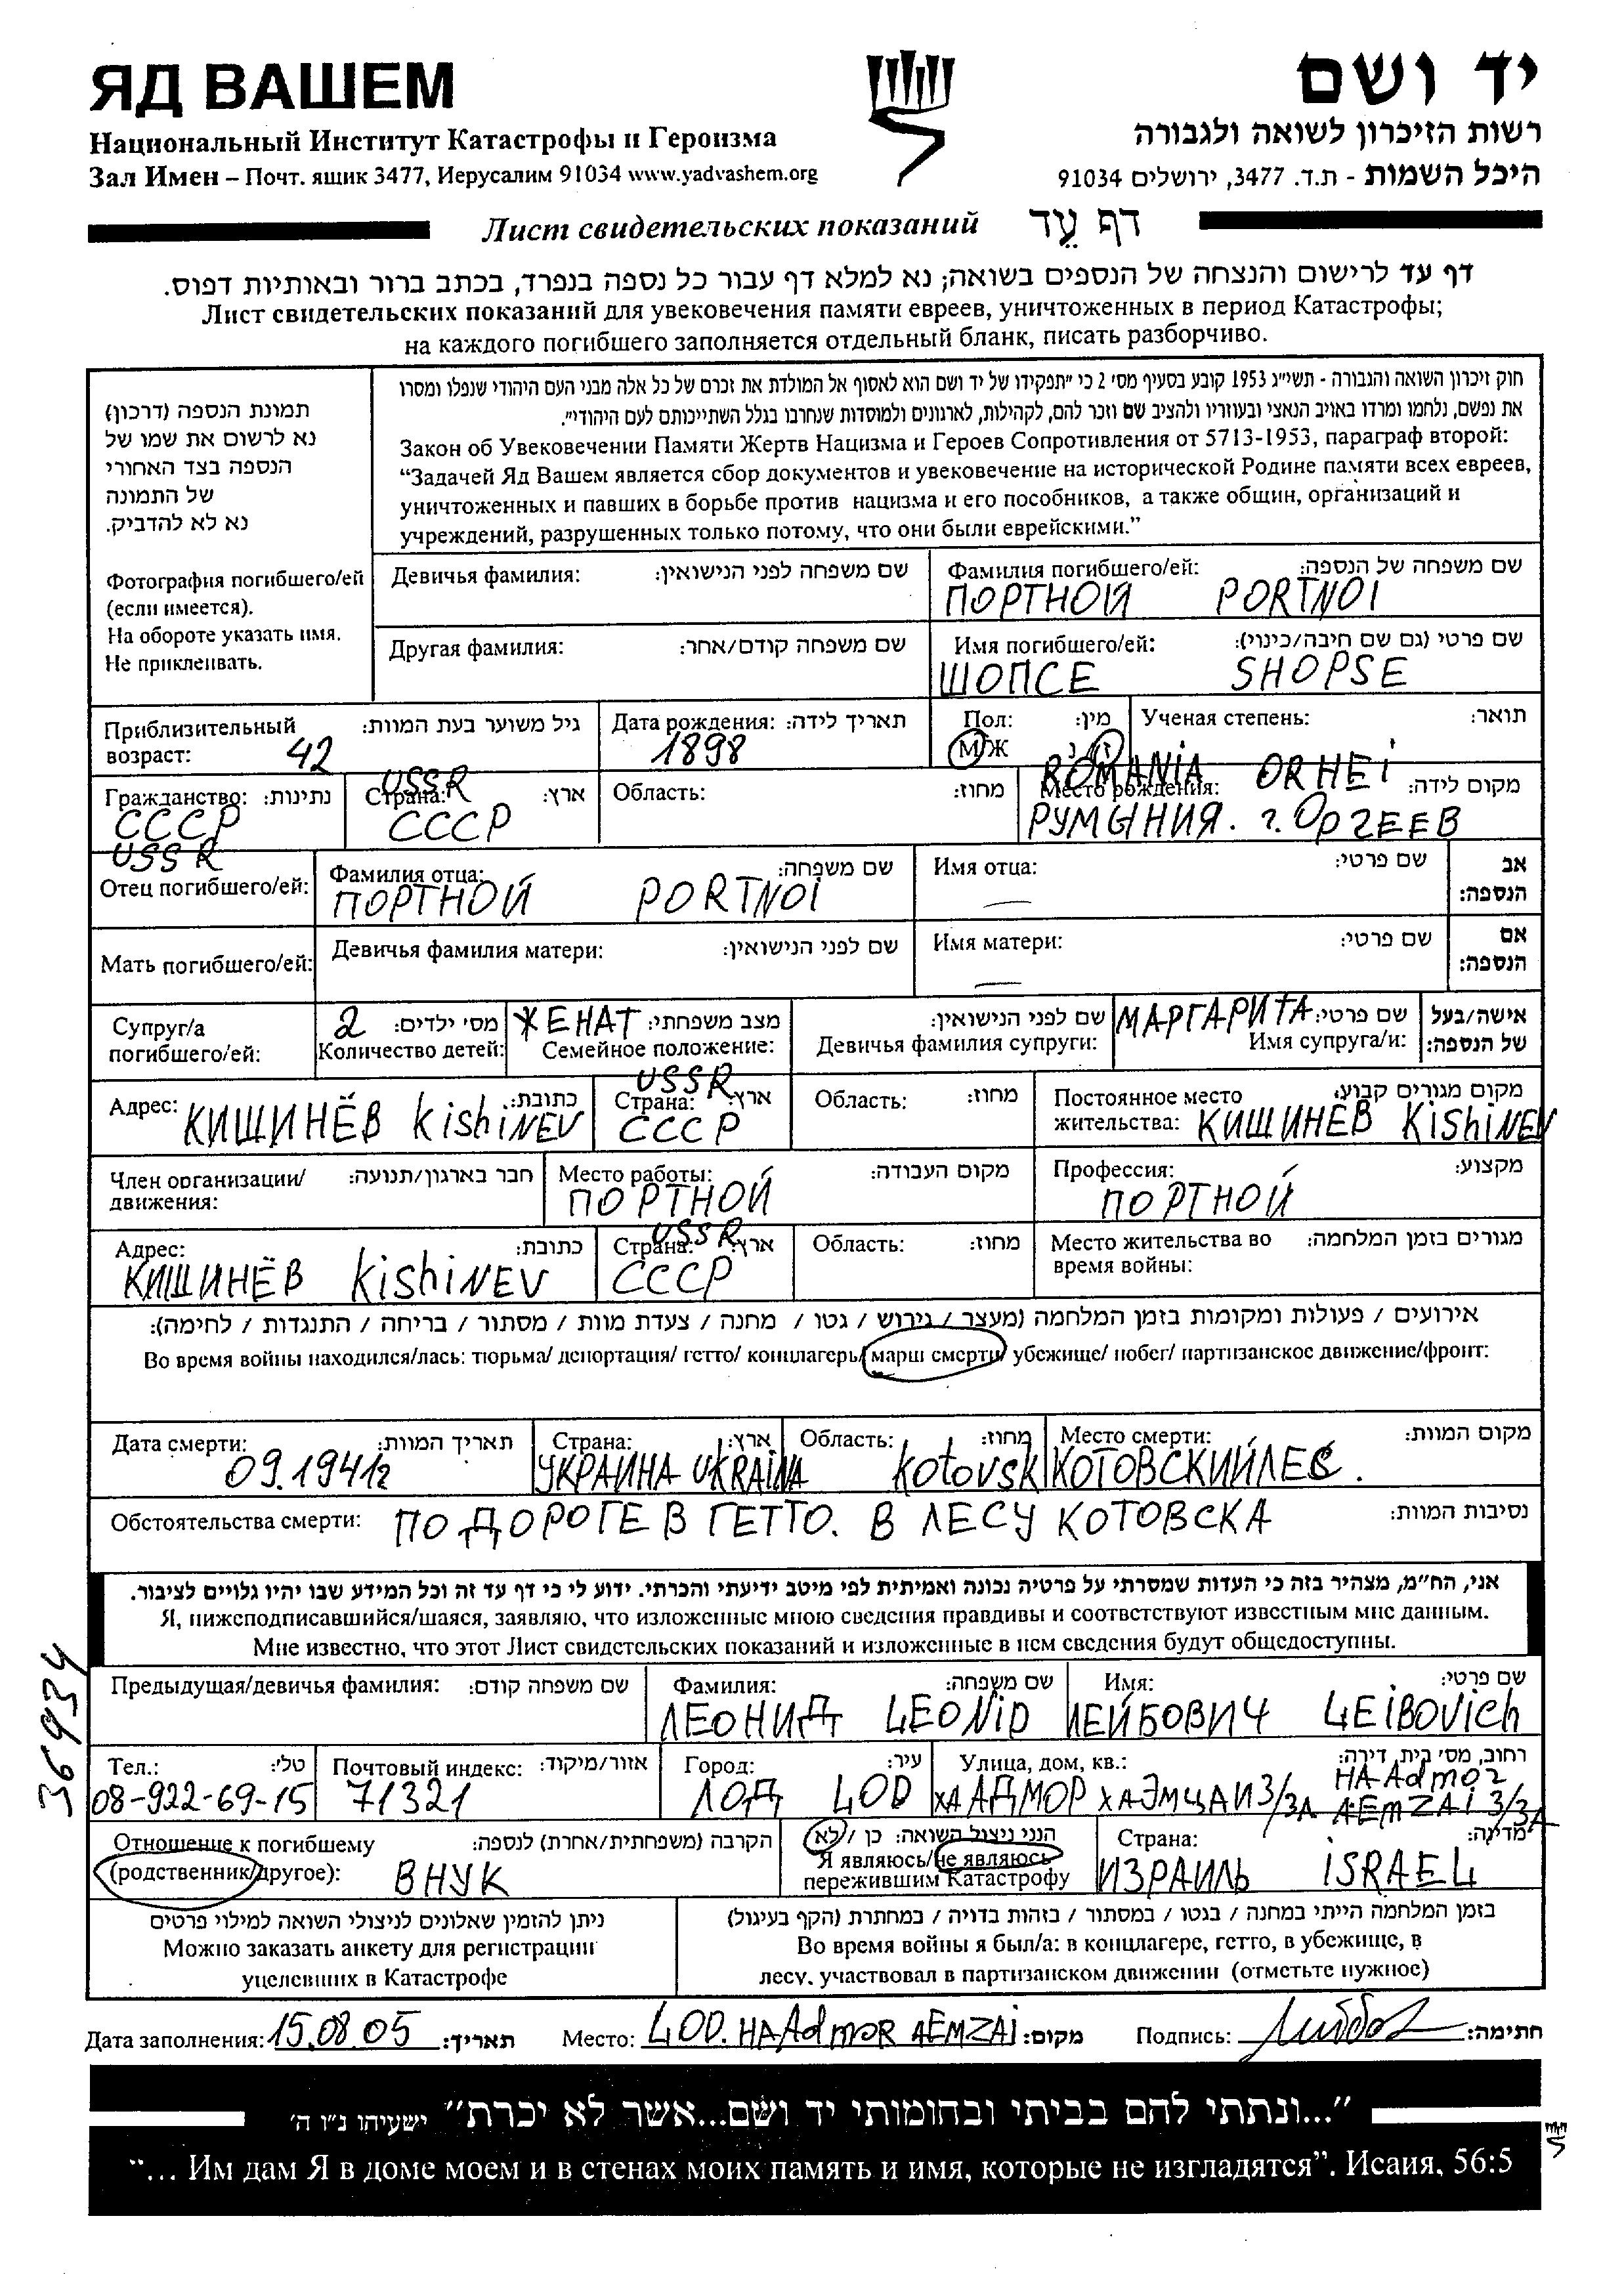 ЯД ВАШЕМ
Национальный Институт Катастрофы и Героизма
Зал Имен – Почт. ящик 3477, Иерусалим 91034 www.yadvashem.org
יד ושם
רשות הזיכרון לשואה ולגבורה
היכל השמות - ת.ד. 3477, ירושלים 91034
Лист свидетельских показаний דף עֵד
דף עד לרישום והנצחה של הנספים בשואה; נא למלא דף עבור כל נספה בנפרד, בכתב ברור ובאותיות דפוס.
Лист свидетельских показаний для увековечения памяти евреев, уничтоженных в период Катастрофы;
на каждого погибшего заполняется отдельный бланк, писать разборчиво.
תמונת הנספה (דרכון)
נא לרשום את שמו של
הנספה בצד האחורי
של התמונה
נא לא להדביק.
Фотография погибшего/ей
(если имеется).
На обороте указать имя.
Не приклеивать.
חוק זיכרון השואה והגבורה - תשי"ג 1953 קובע בסעיף מס' 2 כי "תפקידו של יד ושם הוא לאסוף אל המולדת את זכרם של כל אלה מבני העם היהודי שנפלו ומסרו
את נפשם, נלחמו ומרדו באויב הנאצי ובעוזריו ולהציב שם וזכר להם, לקהילות, לארגונים ולמוסדות שנחרבו בגלל השתייכותם לעם היהודי".
Закон об Увековечении Памяти Жертв Нацизма и Героев Сопротивления от 5713-1953, параграф второй:
“Задачей Яд Вашем является сбор документов и увековечение на исторической Родине памяти всех евреев,
уничтоженных и павших в борьбе против нацизма и его пособников, а также общин, организаций и
учреждений, разрушенных только потому, что они были еврейскими.”
Девичья фамилия: שם משפחה לפני הנישואין:
Фамилия погибшего/ей: שם משפחה של הנספה:
ПОРТНОЙ PORTNOI
Другая фамилия: שם משפחה קודם/אחר:
Имя погибшего/ей: שם פרטי (גם שם חיבה/כינוי):
ШОПСЕ SHOPSE
Приблизительный возраст: גיל משוער בעת המוות:
42
Дата рождения: תאריך לידה:
1898
Пол: מין:
М/Ж ז/נ
Ученая степень: תואר:
Гражданство: נתינות:
СССР
USSR
USSR
Страна: ארץ:
СССР
Область: מחוז:
ROMANIA ORHEI
Место рождения: מקום לידה:
РУМЫНИЯ. г. ОРГЕЕВ
Отец погибшего/ей:
Фамилия отца: שם משפחה:
ПОРТНОЙ PORTNOI
Имя отца: שם פרטי:
—
אב הנספה:
Мать погибшего/ей:
Девичья фамилия матери: שם לפני הנישואין:
Имя матери: שם פרטי:
—
אם הנספה:
Супруг/а погибшего/ей:
2 מס' ילדים:
Количество детей:
ЖЕНАТ מצב משפחתי:
Семейное положение:
שם לפני הנישואין:
Девичья фамилия супруги:
МАРГАРИТА שם פרטי:
Имя супруга/и:
אישה/בעל של הנספה:
Адрес: כתובת:
КИШИНЁВ KishiNEV
USSR
Страна: ארץ:
СССР
Область: מחוז:
Постоянное место жительства: מקום מגורים קבוע:
КИШИНЕВ KishiNEV
Член организации/движения: חבר בארגון/תנועה:
Место работы: מקום העבודה:
ПОРТНОЙ
Профессия: מקצוע:
ПОРТНОЙ
Адрес: כתובת:
КИШИНЁВ KishiNEV
USSR
Страна: ארץ:
СССР
Область: מחוז:
Место жительства во время войны: מגורים בזמן המלחמה:
אירועים / פעולות ומקומות בזמן המלחמה (מעצר / גירוש / גטו / מחנה / צעדת מוות / מסתור / בריחה / התנגדות / לחימה):
Во время войны находился/лась: тюрьма/ депортация/ гетто/ концлагерь/ марш смерти/ убежище/ побег/ партизанское движение/фронт:
Дата смерти: תאריך המוות:
09.1941г
Страна: ארץ:
УКРАИНА UKRAINA
Область: מחוז:
Kotovsk
Место смерти: מקום המוות:
КОТОВСКИЙ ЛЕС.
Обстоятельства смерти: נסיבות המוות:
ПО ДОРОГЕ В ГЕТТО. В ЛЕСУ КОТОВСКА
אני, הח"מ, מצהיר בזה כי העדות שמסרתי על פרטיה נכונה ואמיתית לפי מיטב ידיעתי והכרתי. ידוע לי כי דף עד זה וכל המידע שבו יהיו גלויים לציבור.
Я, нижеподписавшийся/шаяся, заявляю, что изложенные мною сведения правдивы и соответствуют известным мне данным.
Мне известно, что этот Лист свидетельских показаний и изложенные в нем сведения будут общедоступны.
36934
Предыдущая/девичья фамилия: שם משפחה קודם:
Фамилия: שם משפחה:
ЛЕОНИД LEONID
Имя: שם פרטי:
ЛЕЙБОВИЧ LEIBOVICH
Тел.: טל':
08-922-69-15
Почтовый индекс: אזור/מיקוד:
71321
Город: עיר:
ЛОД LOD
Улица, дом, кв.: רחוב, מס' בית, דירה:
ХА АДМОР ХАЭМЦАИ 3/3А HA Admor AEMZAI 3/3A
Отношение к погибшему (родственник/другое): הקרבה (משפחתית/אחרת) לנספה:
ВНУК
הנני ניצול השואה: כן / לא
Я являюсь/не являюсь
пережившим Катастрофу
Страна: מדינה:
ИЗРАИЛЬ ISRAEL
ניתן להזמין שאלונים לניצולי השואה למילוי פרטים
Можно заказать анкету для регистрации
уцелевших в Катастрофе
בזמן המלחמה הייתי במחנה / בגטו / במסתור / בזהות בדויה / במחתרת (הקף בעיגול)
Во время войны я был/а: в концлагере, гетто, в убежище, в
лесу, участвовал в партизанском движении (отметьте нужное)
Дата заполнения: 15.08.05 תאריך: Место: LOD. HA Admor AEMZAI מקום: Подпись: חתימה:
"...ונתתי להם בביתי ובחומותי יד ושם...אשר לא יכרת" ישעיהו נ"ו ה'
“... Им дам Я в доме моем и в стенах моих память и имя, которые не изгладятся”. Исаия, 56:5